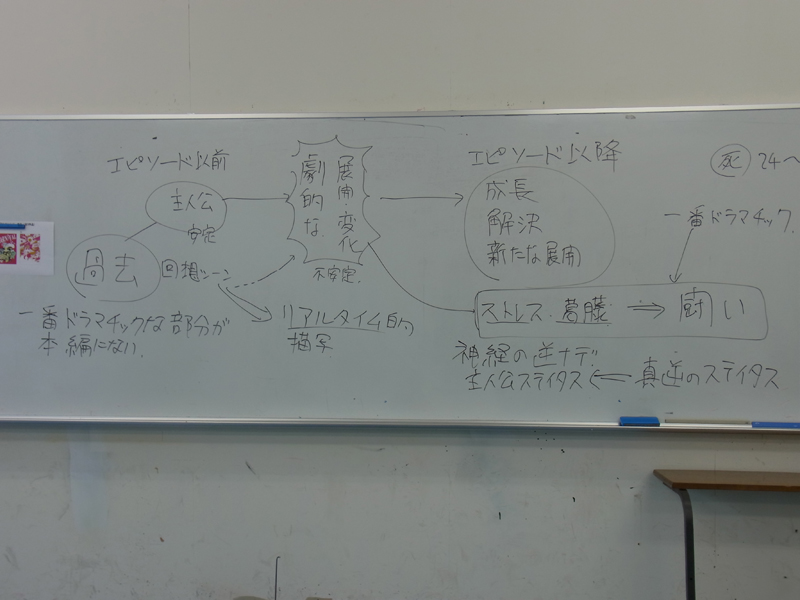 エピソード以前
主人公
安定
過去
回想シーン
一番ドラマチックな部分が
本編にない.
劇的な
展開・変化
不安定.
リアルタイム的
描写
エピソード以降
成長
解決
新たな展開
死 24へ
一番ドラマチック.
ストレス・葛藤 ⇒ 闘い
神経の逆ナデ
主人公ステイタス ← 真逆のステイタス